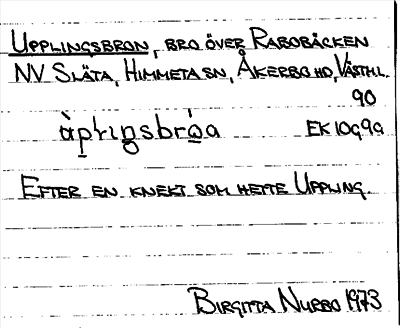 UPPLINGSBRON, BRO ÖVER RABOBÄCKEN
NV SLÄTA, HIMMETA SN, ÅKERBO HD, VÄSTML.
90
àpḷıŋsbrọ̀a EK 10G9a
EFTER EN KNEKT SOM HETTE UPPLING.
BIRGITTA NURBO 1973